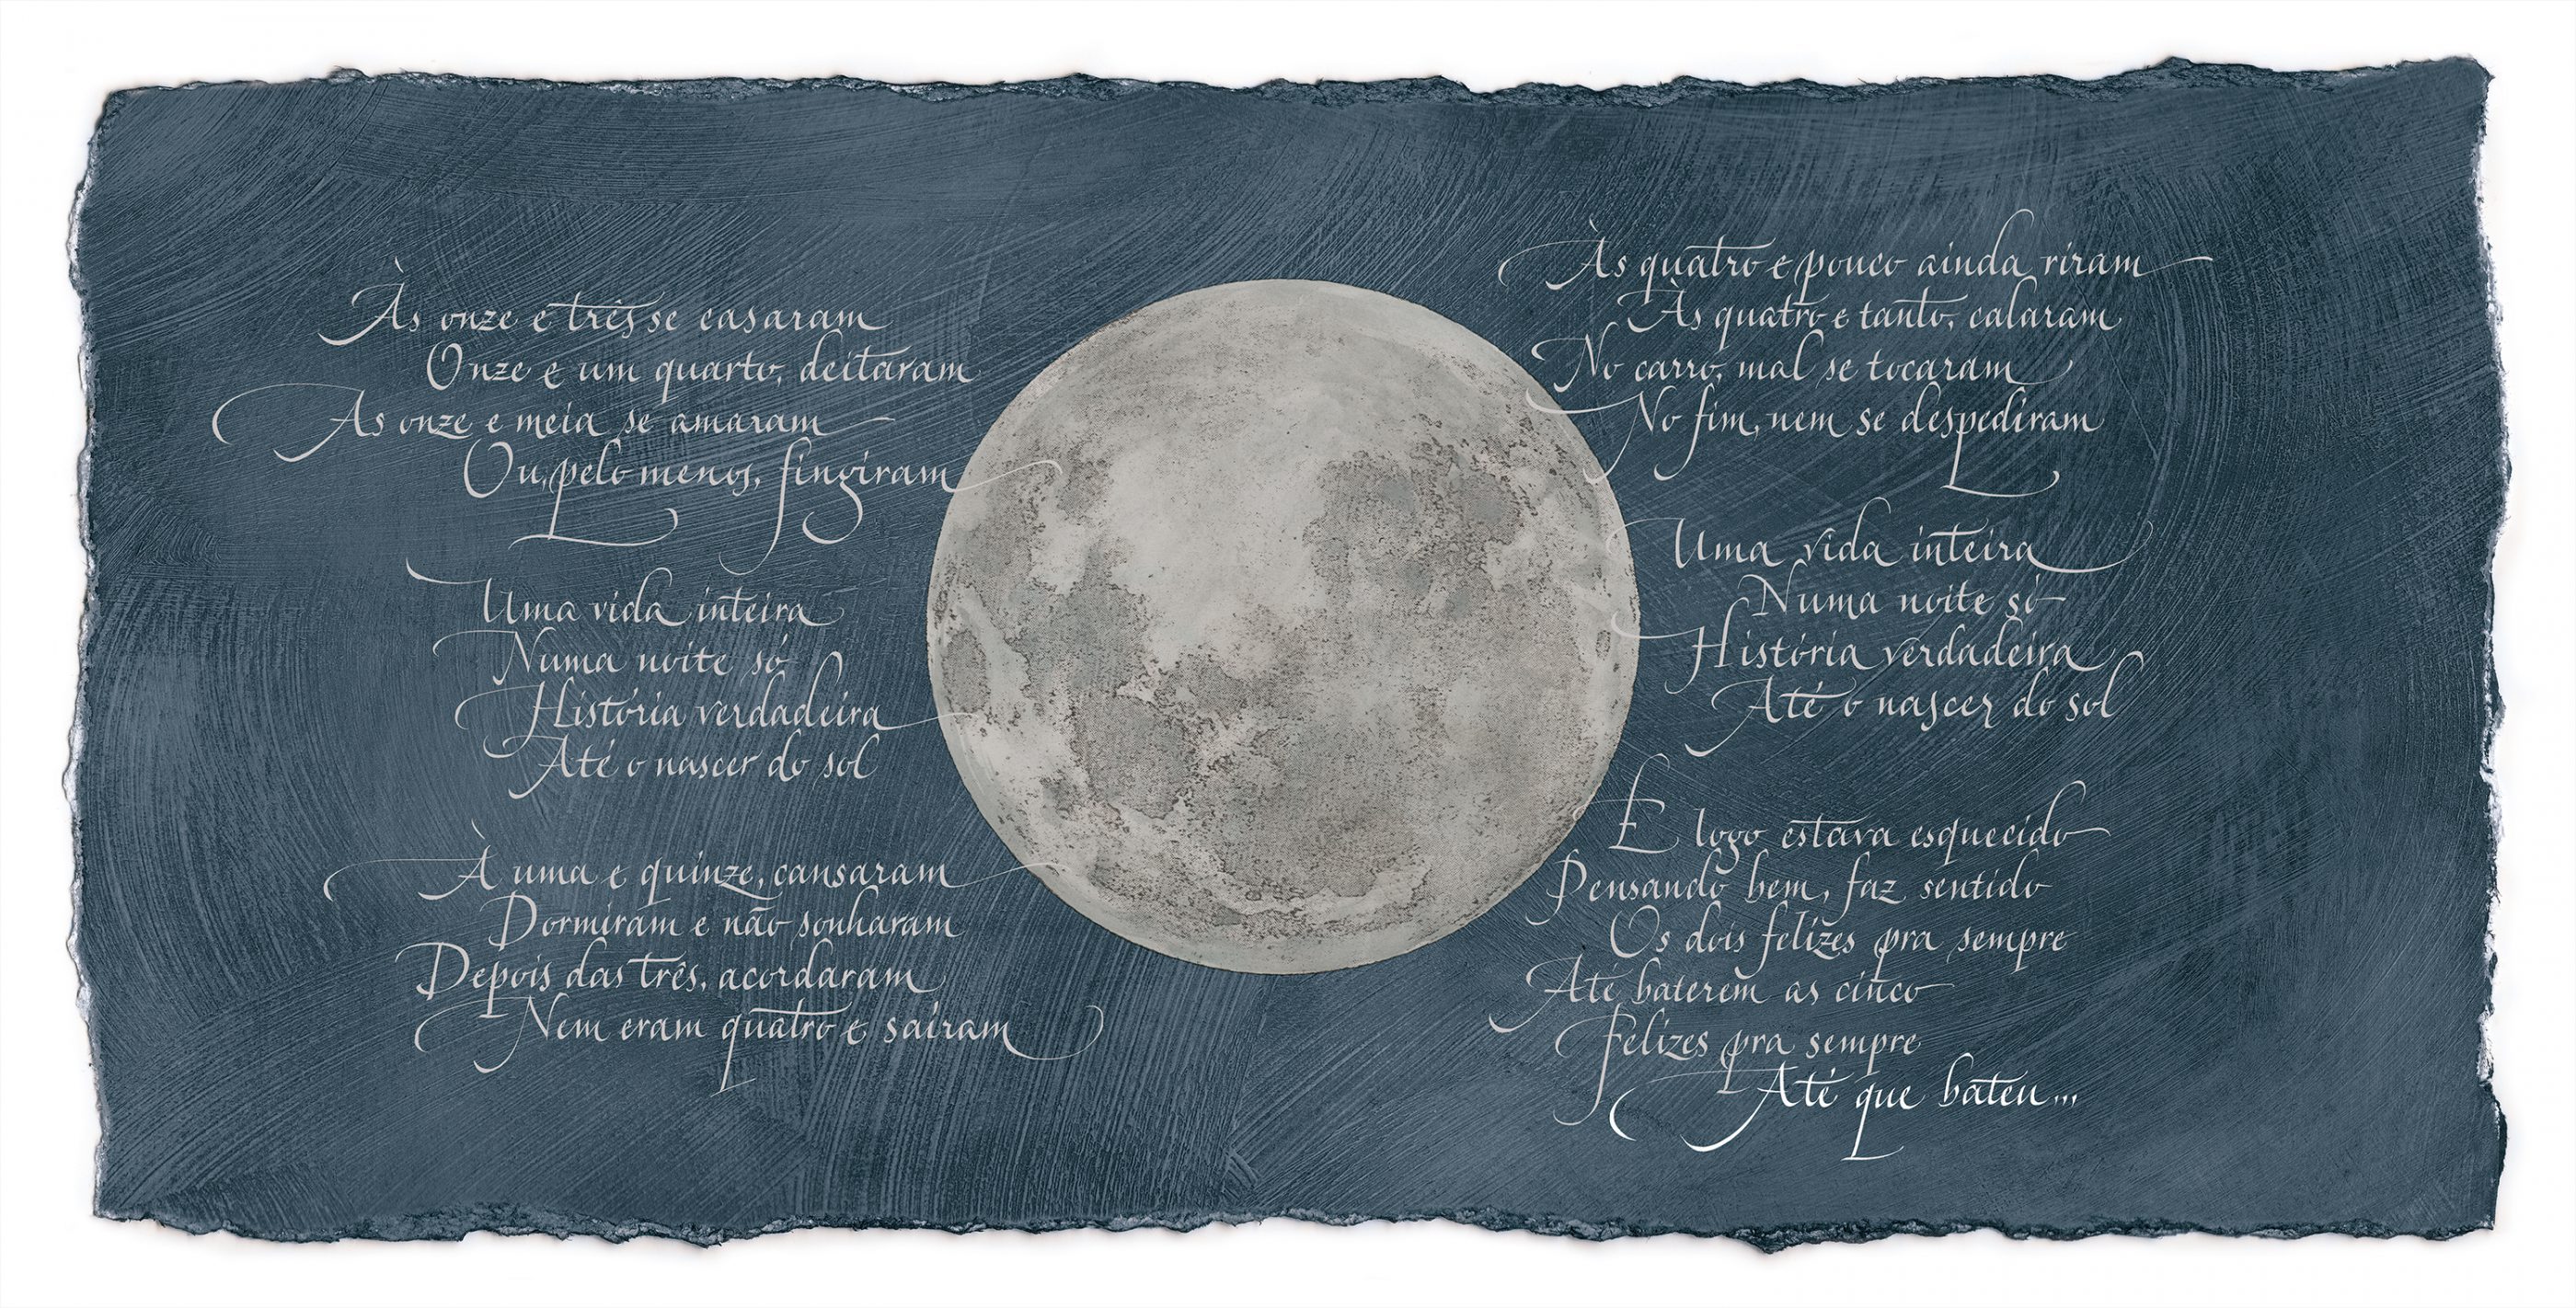 Às onze e três se casaram
Onze e um quarto, deitaram
Às onze e meia se amaram
Ou, pelo menos, fingiram
Uma vida inteira
Numa noite só
História verdadeira
Até o nascer do sol
À uma e quinze, cansaram
Dormiram e não sonharam
Depois das três, acordaram
Nem eram quatro e saíram
Às quatro e pouco ainda riram
Às quatro e tanto, calaram
No carro, mal se tocaram
No fim, nem se despediram
Uma vida inteira
Numa noite só
História verdadeira
Até o nascer do sol
E logo estava esquecido
Pensando bem, faz sentido
Os dois felizes pra sempre
Até baterem as cinco
Felizes pra sempre
Até que bateu...